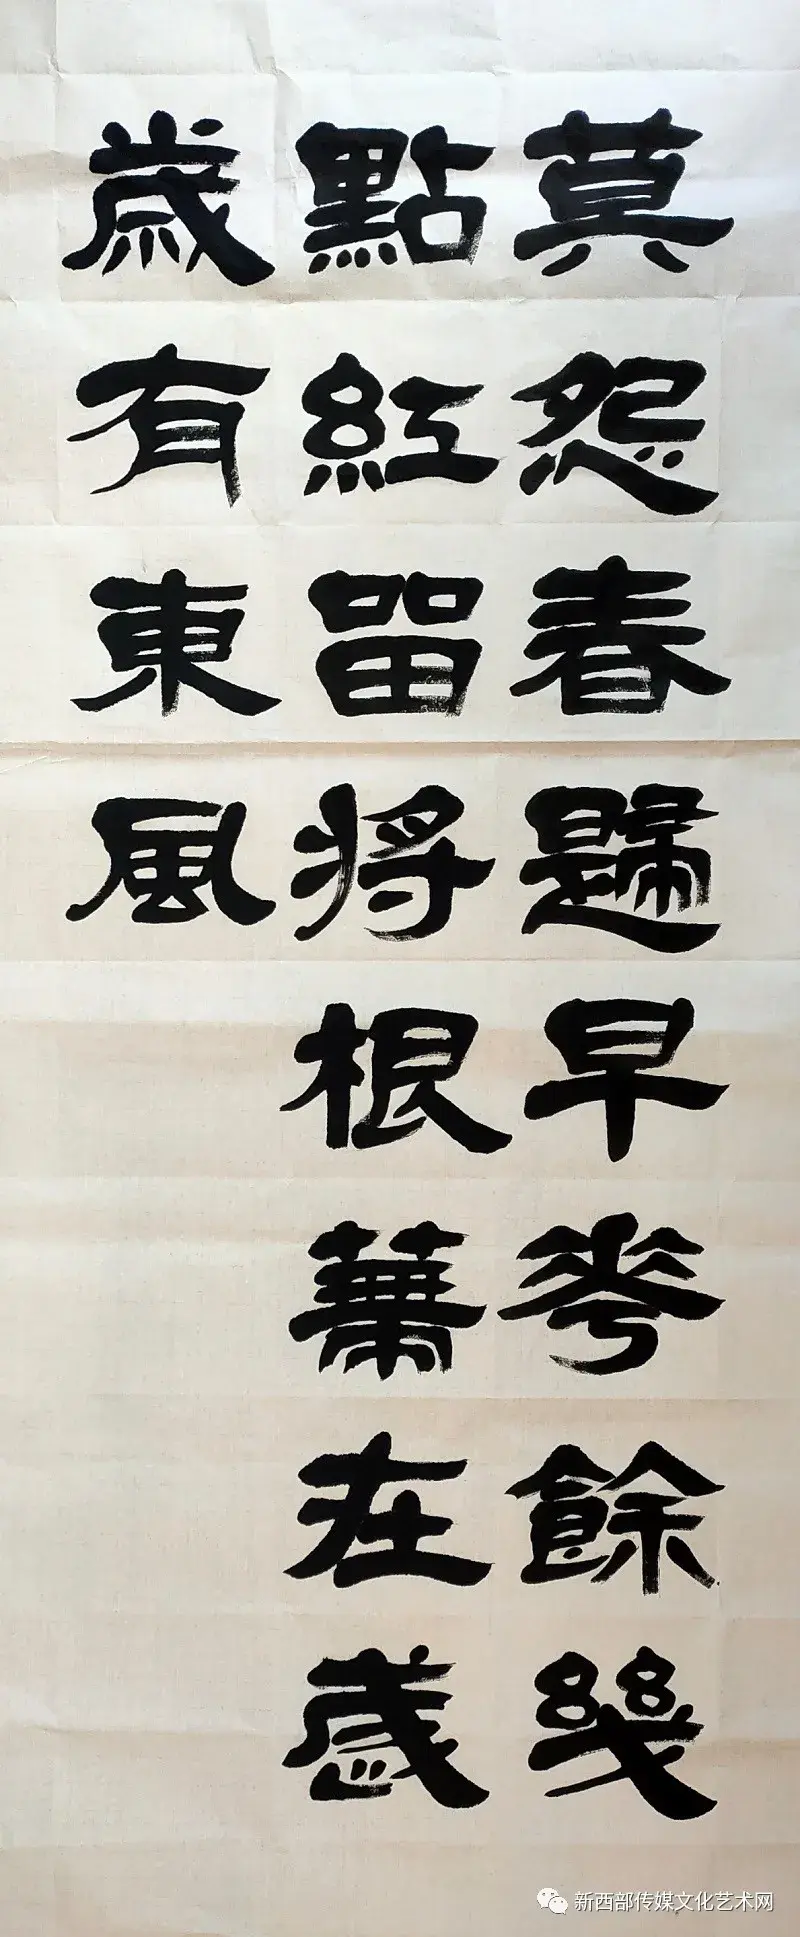 莫怨春歸早花餘幾
點紅留將根蒂在歲
歲有東風
新西部传媒文化艺术网